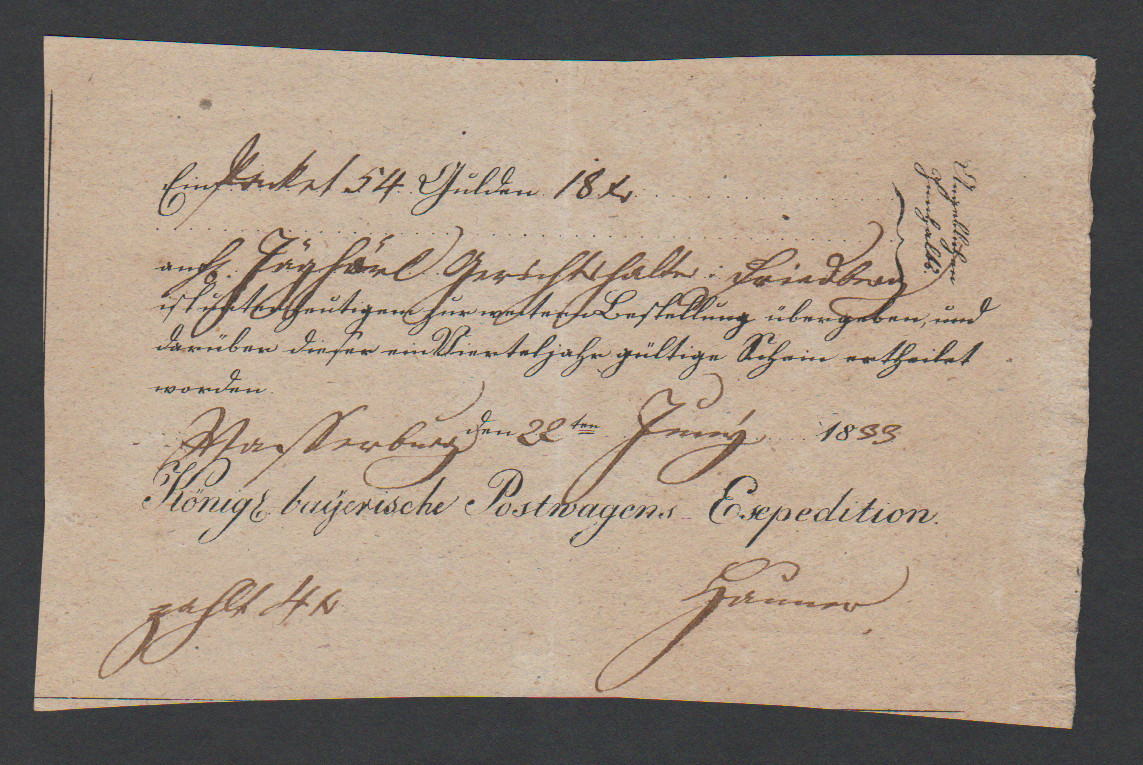 Ein Packet 54 Gulden 18 xr
an H. Täghörl Gerichtshalter i. Friedberg
ist unterheutigem zur weitern Bestellung übergeben, und
darüber dieser ein Vierteljahr gültige Schein ertheilet
worden
Wasserburg den 22ten Juny 1833
Königl. bayerische Postwagens Expedition.
zahlt 4 xr
Hauner